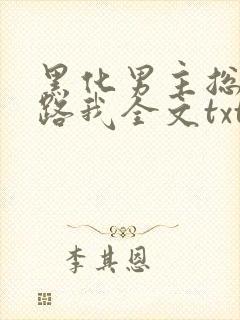 黑化男主总
路我全文txt
李其恩